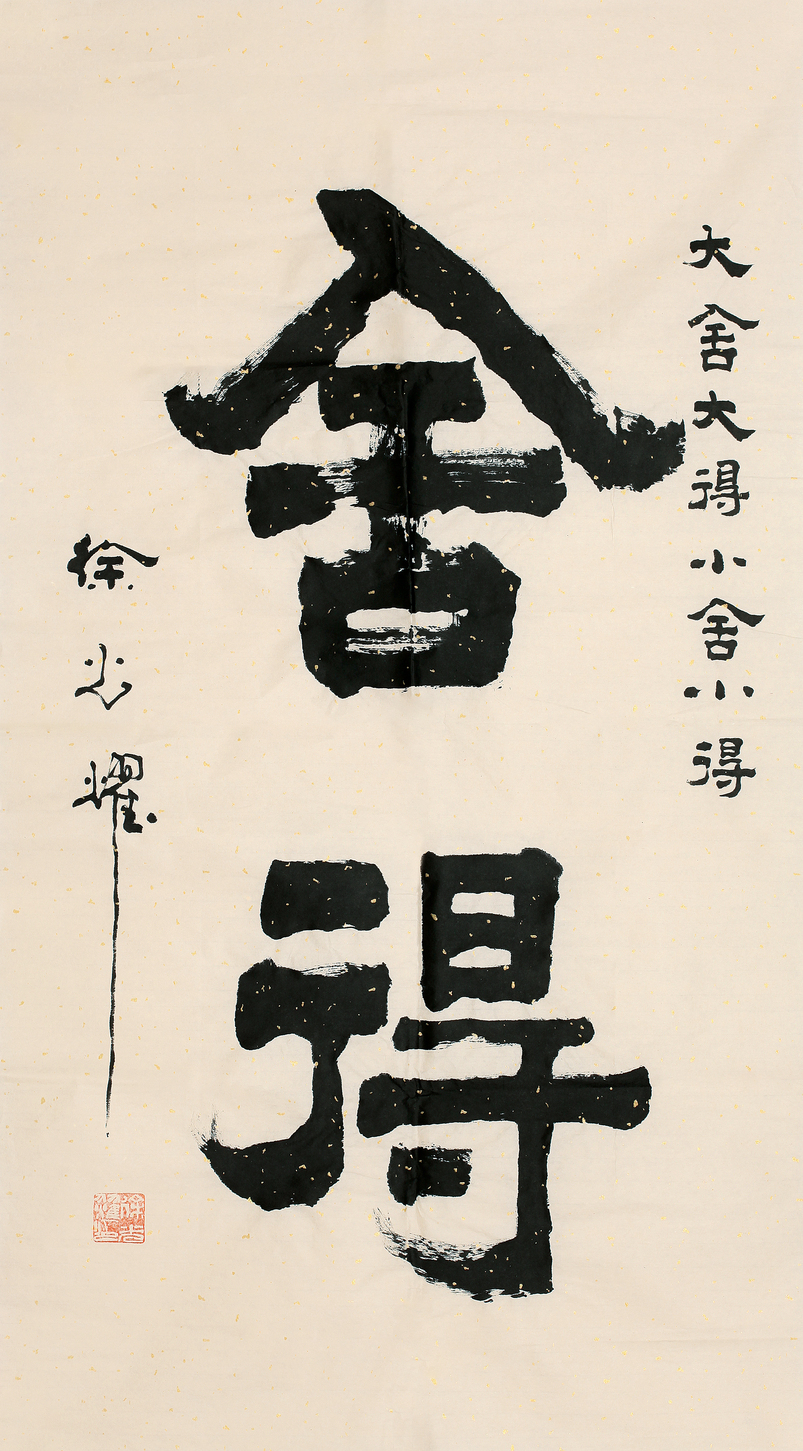 大舍大得小舍小得
舍得
徐光耀